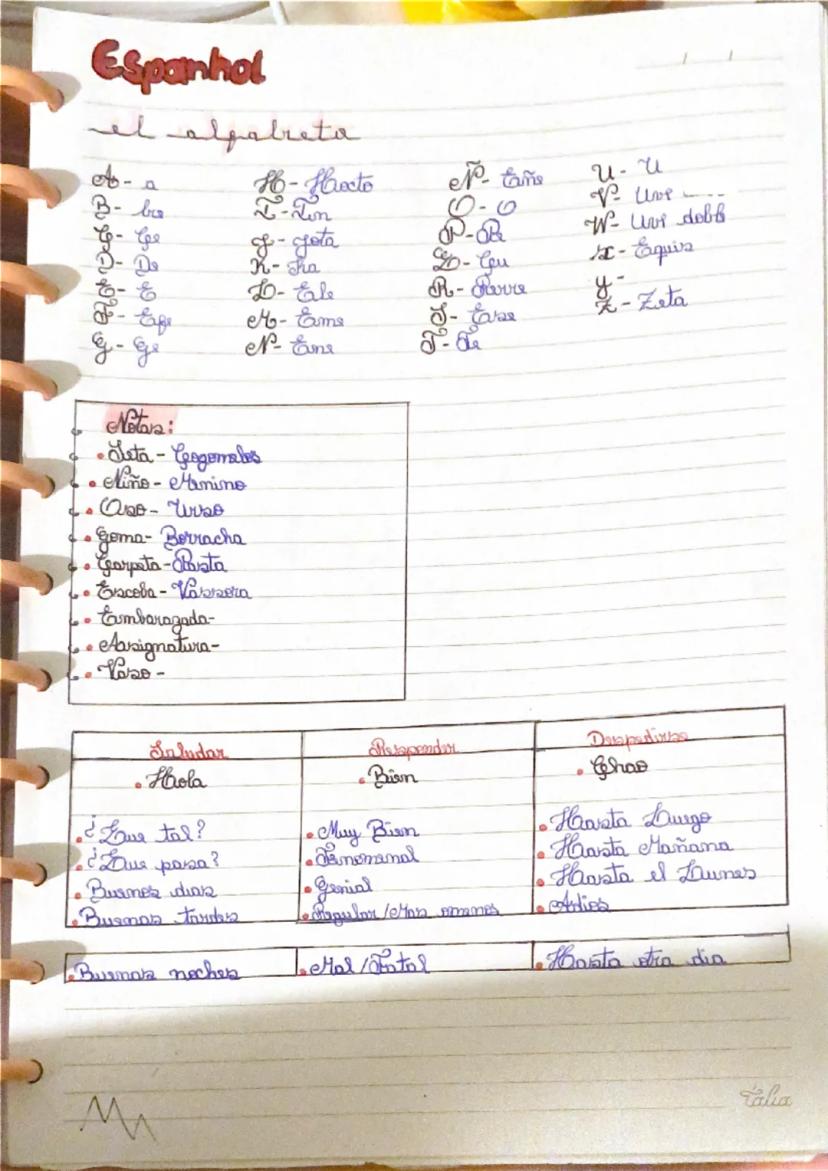 Espanhol
el alfabeto
A - a
B - be
C - Ce
D - De
E - E
F - Efe
G - Ge
H - Hacto
I - Iin
J - Jota
K - Ka
L - Ele
M - Eme
N - Ene
Ñ - Eñe
O - O
P - Pe
Q - Cu
R - Rerre
S - Ese
T - Te
U - U
V - Uve ----
W - Uve dobb
X - Equis
y -
Z - Zeta
Notas:
• Seta - Cogomelos
• Niño - Menino
• Oso - Urso
• Goma - Borracha
• Carpeta - Pasta
• Escoba - Vassora
• Embarazada -
• Assignatura -
• Vaso -
Saludar Responder Despedirse
• Hola • Bien • Chao
• ¿Que tal? • Muy Bien • Hasta Luego
• ¿Que pasa? • Fenomenal • Hasta Mañana
• Buenos dias • Genial • Hasta el Lunes
• Buenas tardes • Regular/Mas omenos • Adios
• Buenas noches • Mal/Fatal • Hasta otra dia
Talia